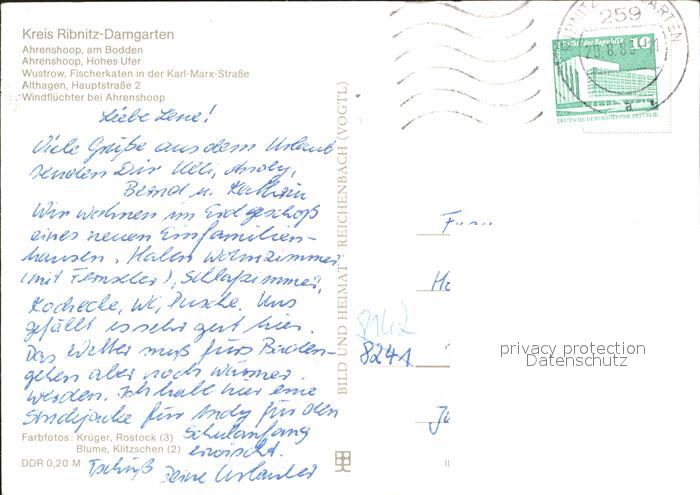 Kreis Ribnitz-Damgarten
Ahrenshoop, am Bodden
Ahrenshoop, Hohes Ufer
Wustrow, Fischerkaten in der Karl-Marx-Straße
Althagen, Hauptstraße 2
Windflüchter bei Ahrenshoop
Liebe Lene!
Viele Grüße aus dem Urlaub
senden Dir Ulli, Andy,
Bernd u. Kathrin
Wir wohnen im Erdgeschoß
eines neuen Einfamilien-
hauses. Haben Wohnzimmer
(mit Fernseher), Schlafzimmer,
Kochecke, WC, Dusche. Uns
gefällt es sehr gut hier.
Das Wetter muß fürs Baden-
gehen aber noch wärmer
werden. Ich habe hier eine
Strickjacke für Andy für den
Schulanfang
erwischt.
Tschüß
Deine Urlauber
Farbfotos: Krüger, Rostock (3)
Blume, Klitzschen (2)
DDR 0,20 M
BILD UND HEIMAT REICHENBACH (VOGTL)
259
10
DEUTSCHE DEMOKRATISCHE REPUBLIK
8142
8241
privacy protection
Datenschutz